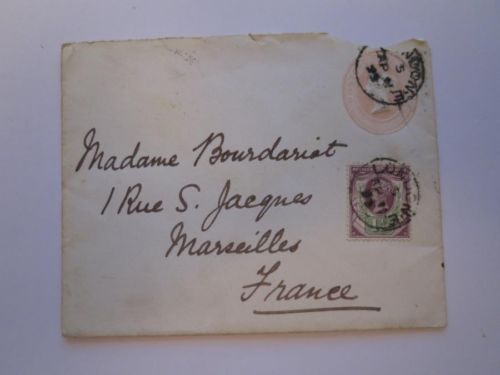 Madame Bourdariat
1 Rue S. Jacques
Marseilles
France